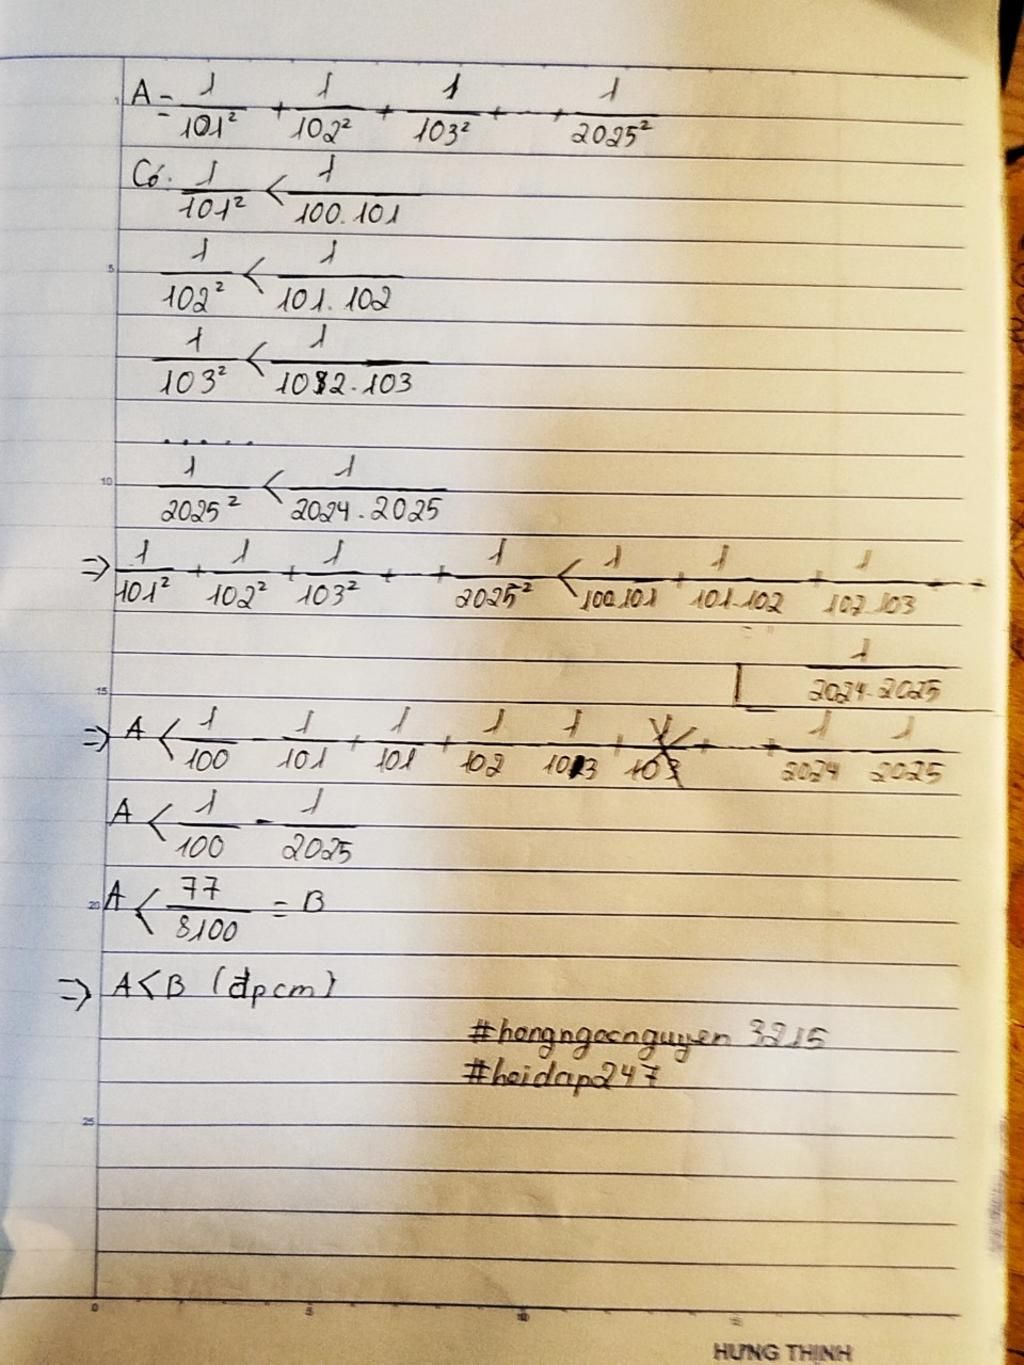 A = 1/101² + 1/102² + 1/103² + ... + 1/2025²
Có: 1/101² < 1/100.101
1/102² < 1/101.102
1/103² < 1/102.103
.....
1/2025² < 1/2024.2025
=> 1/101² + 1/102² + 1/103² + ... + 1/2025² < 1/100.101 + 1/101.102 + 1/102.103 + ... +
1/2024.2025
=> A < 1/100 - 1/101 + 1/101 + 1/102 1/103 + ... + 1/2024 1/2025
A < 1/100 - 1/2025
A < 77/8100 = B
=> A < B (đpcm)
#hongngocnguyen 3215
#hoidap247
5
10
15
20
25
0 5 10 15
HƯNG THỊNH